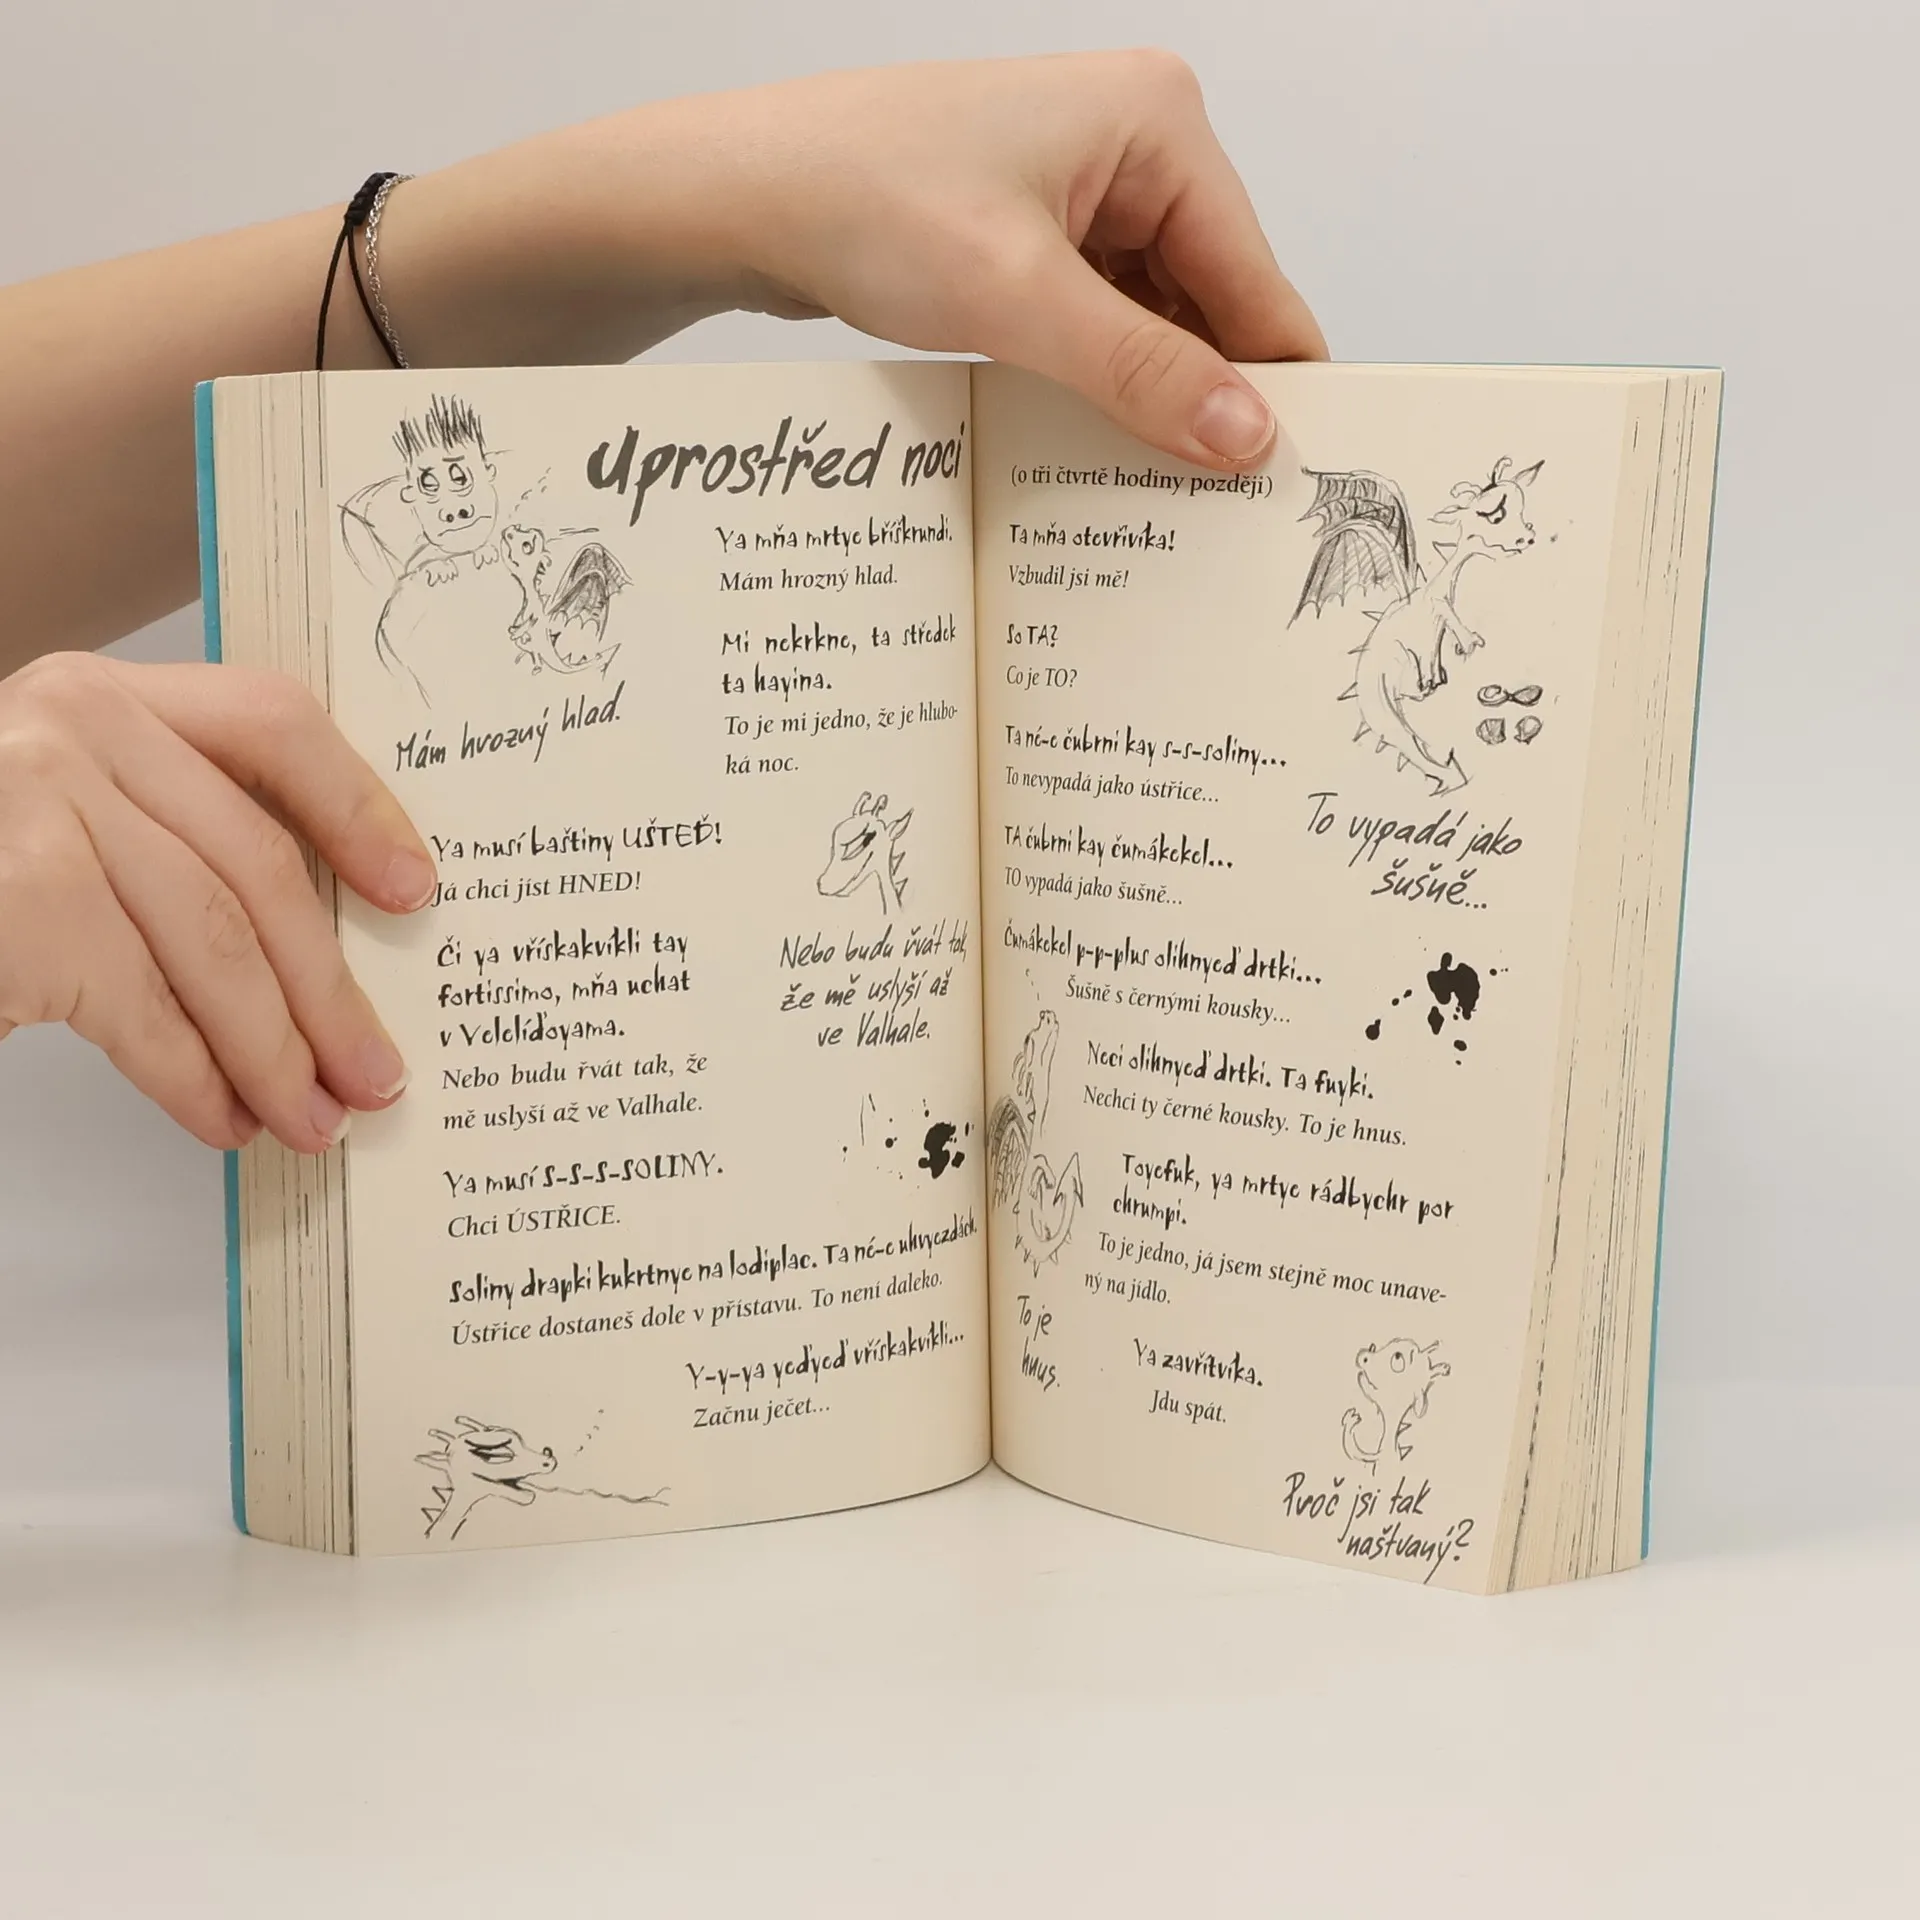 Uprostřed noci
Ya mňa mrtye bříškrundi.
Mám hrozný hlad.
Mi nekrkne, ta středek
ta hayina.
To je mi jedno, že je hlubo-
ká noc.
Mám hrozný hlad.
Ya musí baštiny UŠTEĎ!
Já chci jíst HNED!
Či ya vřískakvíkli tay
fortissimo, mňa uchat
v Velelíďoyama.
Nebo budu řvát tak, že
mě uslyší až ve Valhale.
Nebo budu řvát tak,
že mě uslyší až
ve Valhale.
Ya musí S-S-S-SOLINY.
Chci ÚSTŘICE.
Soliny drapki kukrtnye na lodiplac. Ta né-e uhvyezdách.
Ústřice dostaneš dole v přístavu. To není daleko.
Y-y-ya yeďyeď vřískakvíkli...
Začnu ječet...
(o tři čtvrtě hodiny později)
Ta mňa otevřivíka!
Vzbudil jsi mě!
So TA?
Co je TO?
Ta né-e čubrni kay s-s-soliny...
To nevypadá jako ústřice...
TA čubrni kay čumákekel...
TO vypadá jako šušně...
To vypadá jako
šušně...
Čumákekel p-p-plus olihnyeď drtki...
Šušně s černými kousky...
Neci olihnyeď drtki. Ta fuyki.
Nechci ty černé kousky. To je hnus.
Toyefuk, ya mrtye rádbychr por
chrumpi.
To je jedno, já jsem stejně moc unave-
ný na jídlo.
To je
hnus.
Ya zavřítvíka.
Jdu spát.
Proč jsi tak
naštvaný?